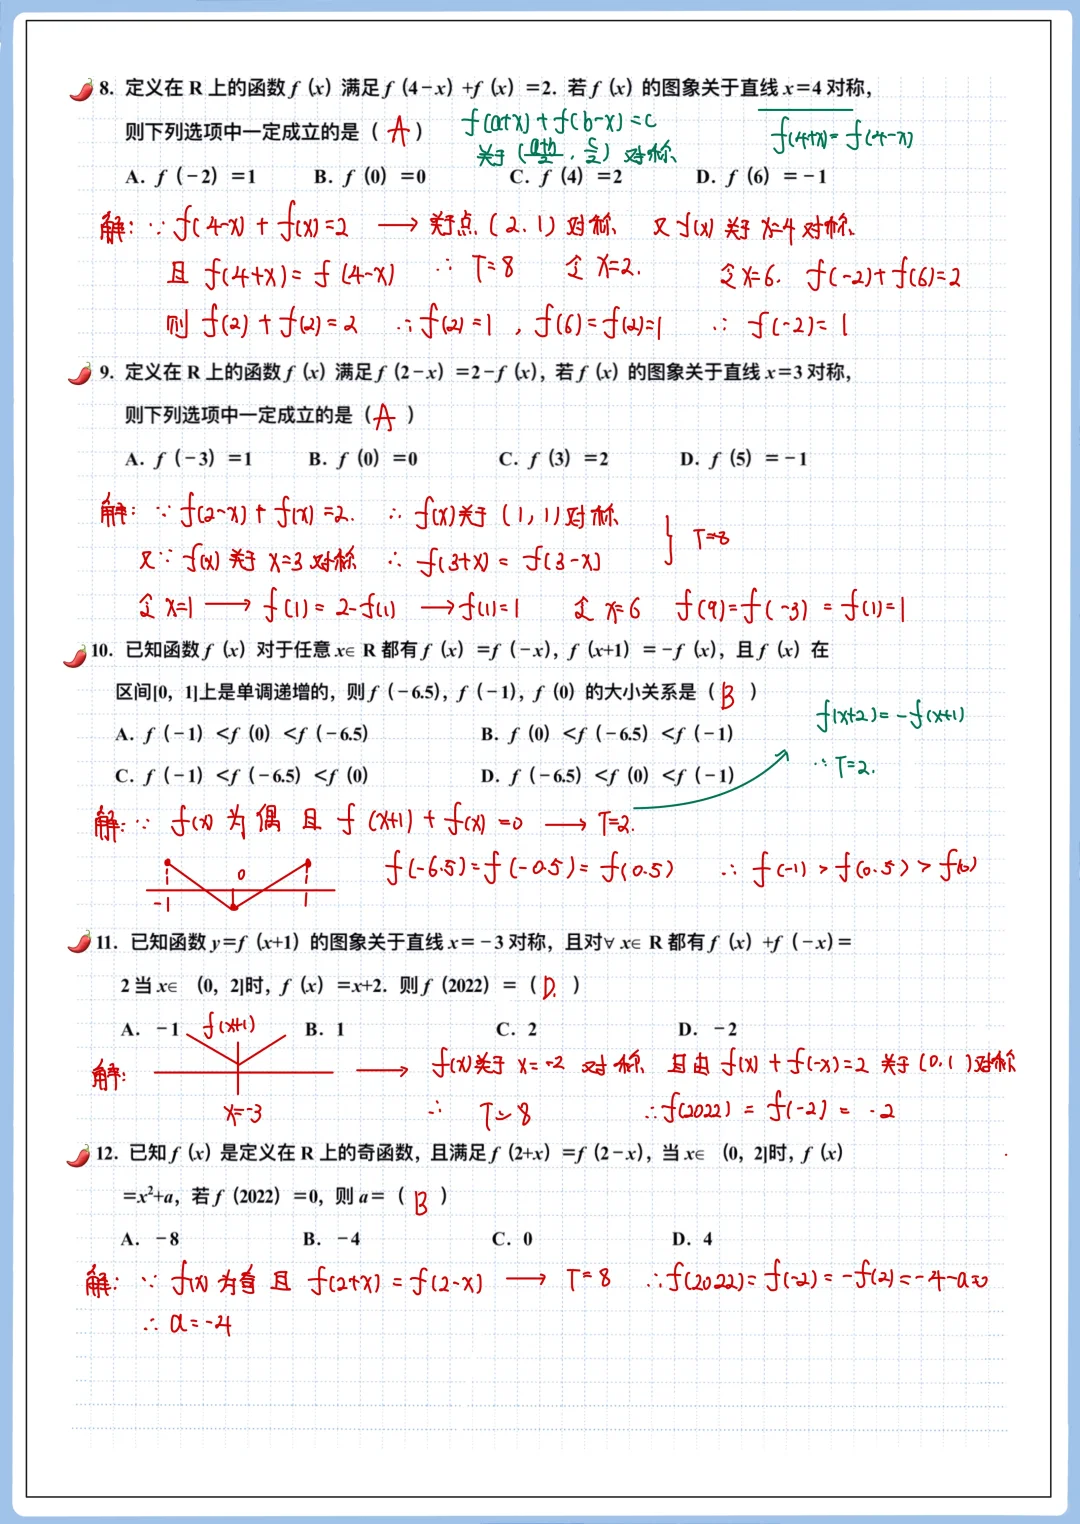 8. 定义在 R 上的函数 f（x）满足 f（4－x）+f（x）=2. 若 f（x）的图象关于直线 x=4 对称，
f(a+x)+f(b-x)=c
f(4+x)=f(4-x)
则下列选项中一定成立的是（ A ）
关于(a+b/2, c/2) 对称
A. f（－2）=1 B. f（0）=0 C. f（4）=2 D. f（6）=－1
解: ∵ f(4-x)+f(x)=2 → 关于点(2,1)对称 又f(x)关于x=4对称
且 f(4+x)=f(4-x) ∴ T=8 令 x=2. 令x=6. f(-2)+f(6)=2
则 f(2)+f(2)=2 ∴ f(2)=1, f(6)=f(2)=1 ∴ f(-2)=1
9. 定义在 R 上的函数 f（x）满足 f（2－x）=2－f（x），若 f（x）的图象关于直线 x=3 对称，
则下列选项中一定成立的是（ A ）
A. f（－3）=1 B. f（0）=0 C. f（3）=2 D. f（5）=－1
解: ∵ f(2-x)+f(x)=2. ∴ f(x)关于(1,1)对称
} T=8
又∵ f(x)关于x=3对称 ∴ f(3+x)=f(3-x)
令x=1 → f(1)=2-f(1) → f(1)=1 令x=6 f(9)=f(-3)=f(1)=1
10. 已知函数 f（x）对于任意 x∈R 都有 f（x）=f（－x），f（x+1）=－f（x），且 f（x）在
区间[0，1]上是单调递增的，则 f（－6.5），f（－1），f（0）的大小关系是（ B ）
f(x+2)=-f(x+1)
A. f（－1）<f（0）<f（－6.5） B. f（0）<f（－6.5）<f（－1）
∴ T=2.
C. f（－1）<f（－6.5）<f（0） D. f（－6.5）<f（0）<f（－1）
解: ∵ f(x)为偶 且 f(x+1)+f(x)=0 → T=2.
f(-6.5)=f(-0.5)=f(0.5) ∴ f(-1)>f(0.5)>f(0)
0
-1 1
11. 已知函数 y=f（x+1）的图象关于直线 x=－3 对称，且对∀x∈R 都有 f（x）+f（－x）=
2 当 x∈（0，2]时，f（x）=x+2. 则 f（2022）=（ D. ）
A. －1 B. 1 C. 2 D. －2
f(x+1)
解: → f(x)关于 x=-2 对称 且由 f(x)+f(-x)=2 关于(0,1)对称
x=-3 ∴ T=8 ∴ f(2022)=f(-2)=-2
12. 已知 f（x）是定义在 R 上的奇函数，且满足 f（2+x）=f（2－x），当 x∈（0，2]时，f（x）
=x²+a，若 f（2022）=0，则 a=（ B ）
A. －8 B. －4 C. 0 D. 4
解: ∵ f(x)为奇 且 f(2+x)=f(2-x) → T=8 ∴ f(2022)=f(-2)=-f(2)=-4-a=0
∴ a=-4